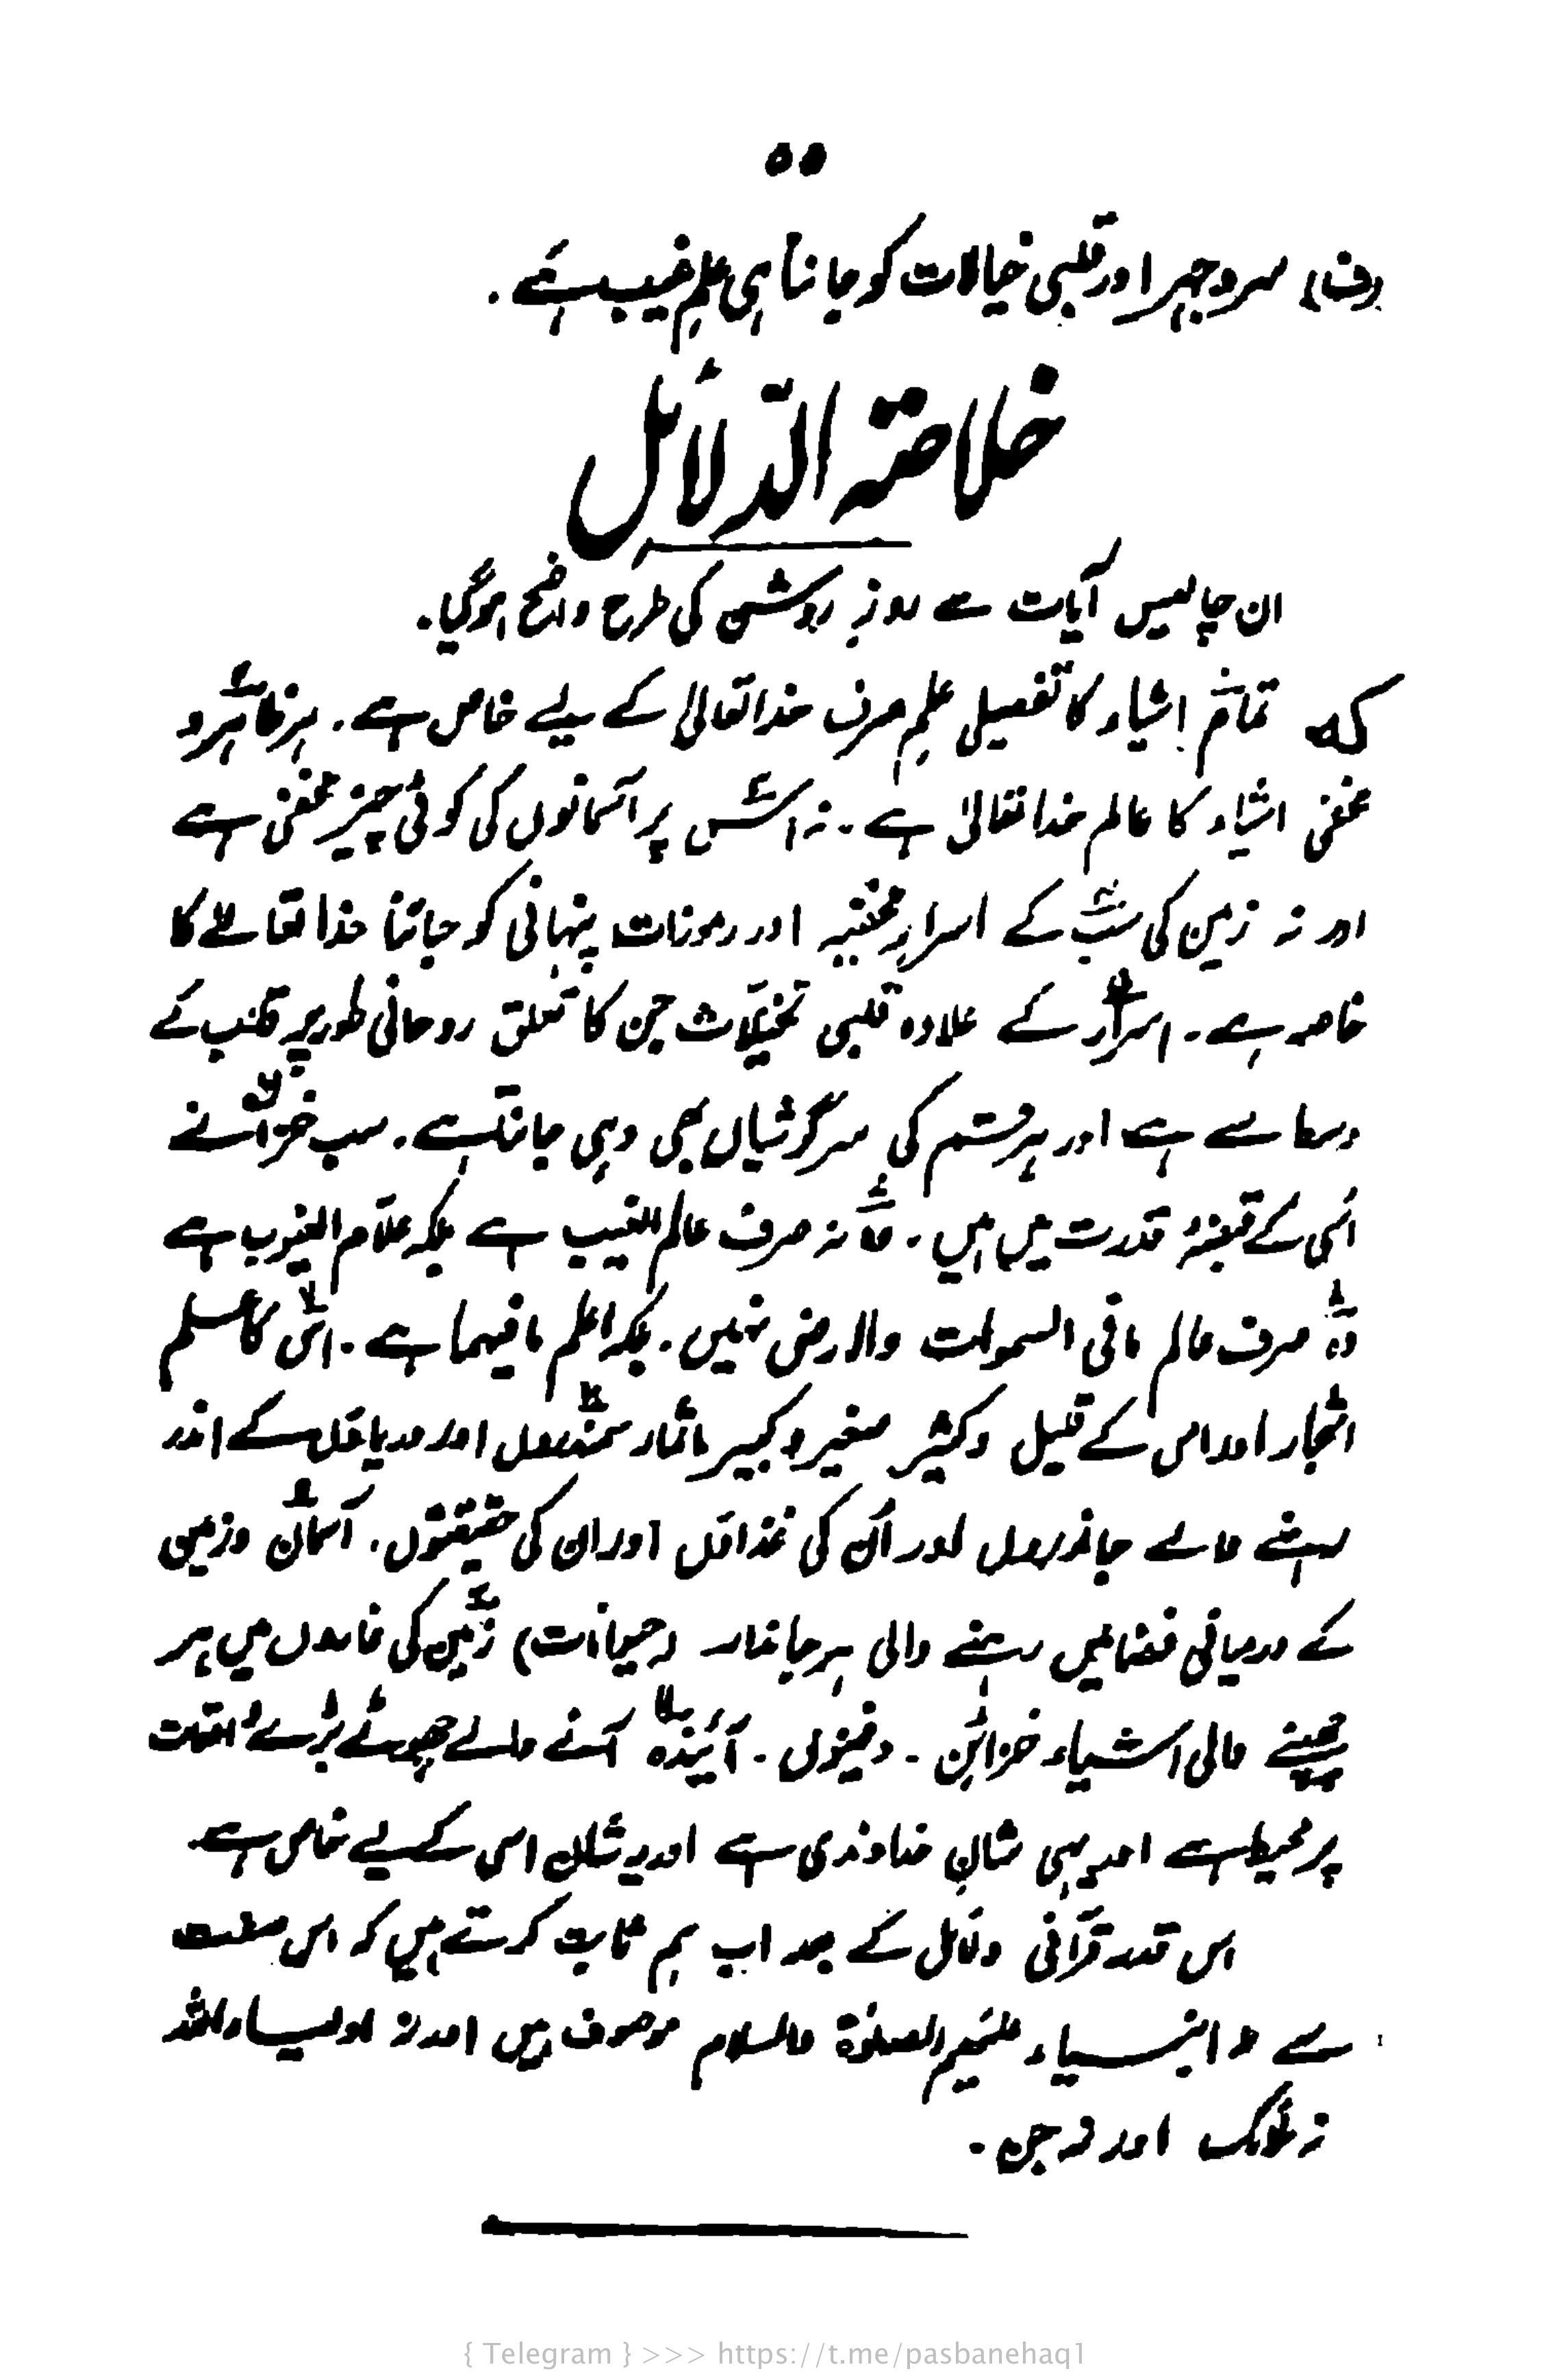 ۵۵
(ف) سر و جہر اور قلبی خیالات کو جاننا ہی علمِ غیب ہے۔
خلاصۃ الدلائل
ان چالیس آیات سے روزِ روشن کی طرح واضح ہوگیا۔
کہ تمام اشیاء کا تفصیلی علم صرف خدا تعالیٰ کے لیے خاص ہے۔ ہر ظاہر و
مخفی اشیاء کا عالم خدا تعالیٰ ہے۔ نہ اس پر آسمانوں کی کوئی چیز مخفی ہے
اور نہ زمین کی سب کے اسرارِ مخفیہ اور رموزات پنہانی کو جاننا خدا تعالےٰ کا
خاصہ ہے۔ اسرار کے علاوہ قلبی تخیلات جن کا تعلق روحانی طور پر قلب کے
وسط سے ہے اور ہر قسم کی سرگوشیاں بھی وہی جانتا ہے۔ سب خزانے
اسی کے قبضۂ قدرت میں ہیں۔ وہ نہ صرف عالم الغیب ہے بلکہ علام الغیوب ہے
وہ صرف عالم مافی السموات والارض نہیں۔ بلکہ اعلم مافیہما ہے۔ اس کا علم
اشجار اور اس کے قلیل و کثیر صغیر و کبیر اثمار سمندروں اور دریاؤں کے اندر
رہنے والے جانوروں اور ان کی غذاؤں اور ان کی حقیقتوں۔ آسمان و زمین
کے درمیانی فضا میں رہنے والی ہر جاندار (حیوانات) زمین کی غاروں میں ہر
چھپنے والی اشیاء خزائن۔ دفینوں۔ آئندہ آنے والے چھوٹے بڑے واقعات
پر محیط ہے اور یہی شانِ خداوندی ہے اور یہ شان اسی کے لیے خاص ہے
اس قدر قرآنی دلائل کے بعد اب ہم ثابت کرتے ہیں کہ اس صفت
سے نہ انبیاء علیہم الصلوٰۃ والسلام موصوف ہیں اور نہ اولیاء اللہ
نہ ملائک اور نہ جن۔
{ Telegram } >>> https://t.me/pasbanehaq1